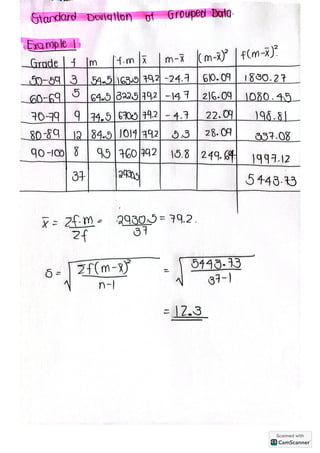 Standard Deviation of Grouped Data.
Example 1
Grade f m f.m x̄ m-x̄ (m-x̄)² f(m-x̄)²
50-59 3 54.5 163.5 79.2 -24.7 610.09 1830.27
60-69 5 64.5 322.5 79.2 -14.7 216.09 1080.45
70-79 9 74.5 670.5 79.2 -4.7 22.09 198.81
80-89 12 84.5 1014 79.2 5.3 28.09 337.08
90-100 8 95 760 79.2 15.8 249.64 1997.12
37 2930.5 5443.73
x̄ = Σf.m / Σf = 2930.5 / 37 = 79.2.
s = √ Σf(m-x̄)² / n-1 = √ 5443.73 / 37-1
= 12.3
Scanned with
CS CamScanner